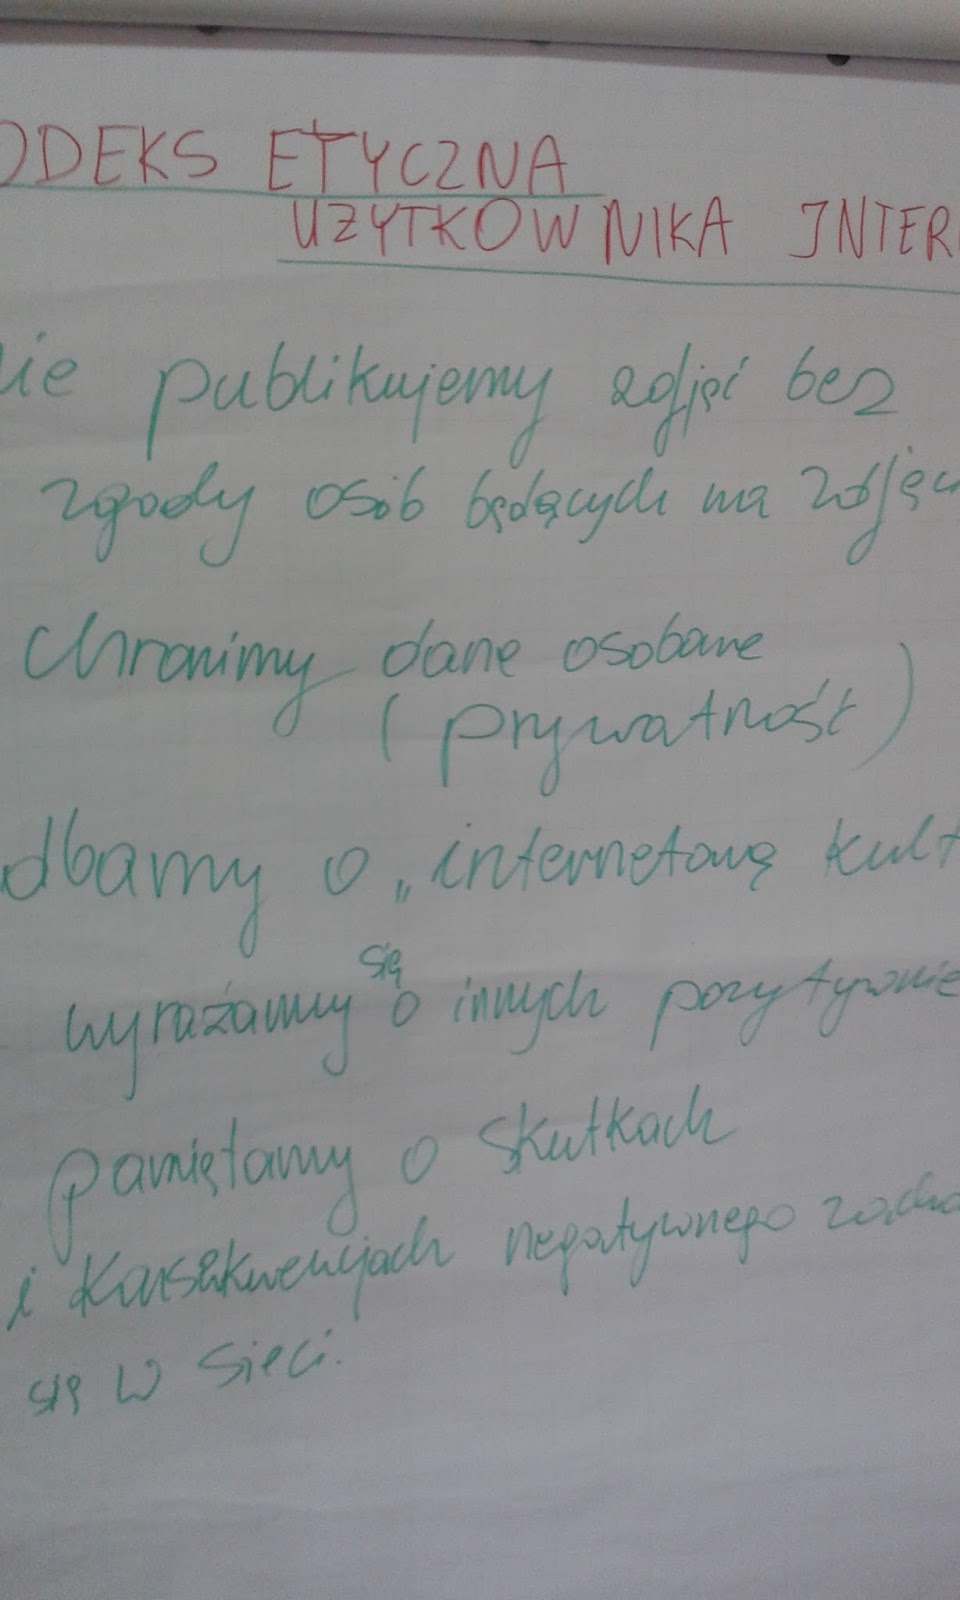 ODEKS ETYCZNA
UZYTKOWNIKA INTER
ie publikujemy zdjęć bez
zgody osób będących na zdjęci
Chronimy dane osobowe
(prywatność)
dbamy o „internetową kult
wyrażamy się o innych pozytywnie
pamiętamy o skutkach
i konsekwencjach negatywnego zacho
się w sieci.